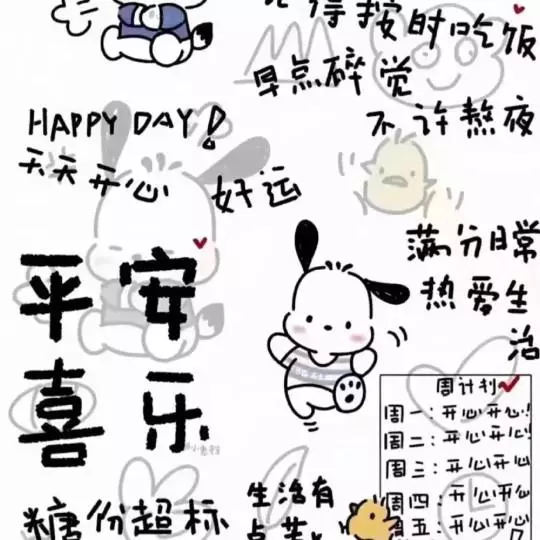 得按时吃饭
早点碎觉
不许熬夜
HAPPY DAY!
天天开心
好运
平安
喜乐
满分日常
热爱生
活
周计划
周一:开心开心!
周二:开心开心!
周三:开心开心
周四:开心开心
周五:开心开心
糖份超标
生活有
点苦